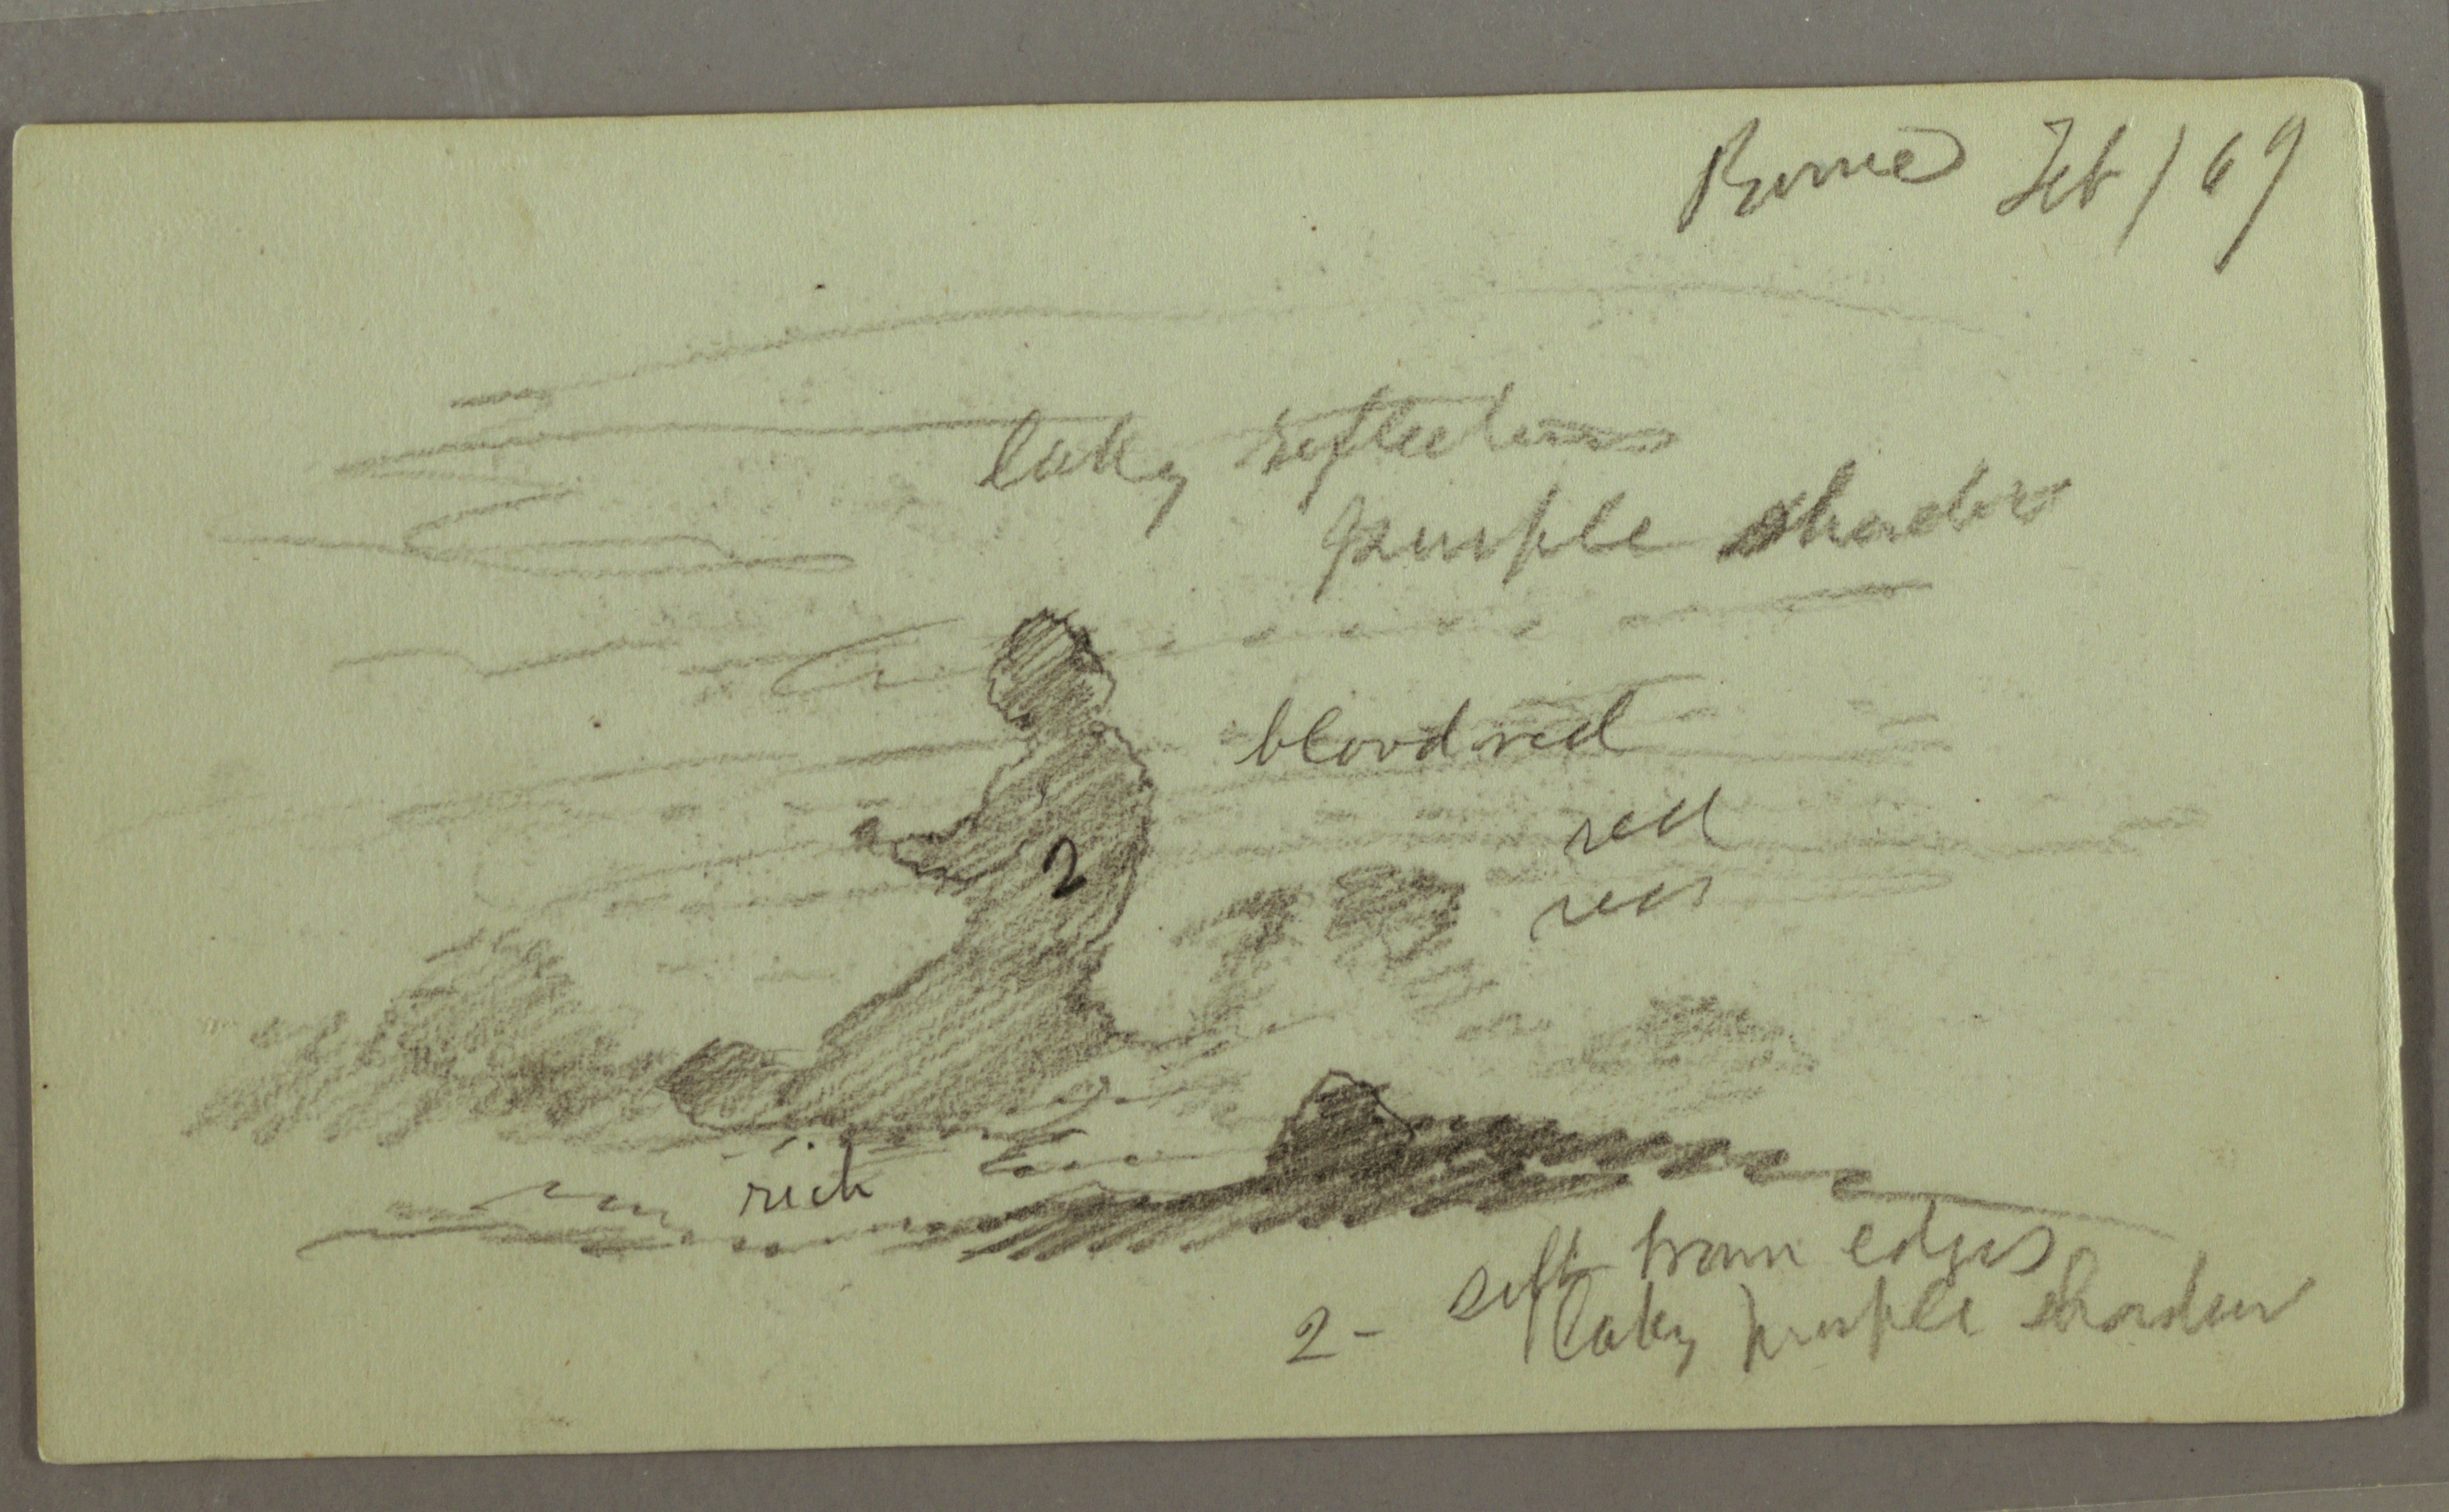 Rome Feb / 69
laky reflections
purple shades
blood red
red
red
2
rich
soft warm edges
2 - laky purple shadow